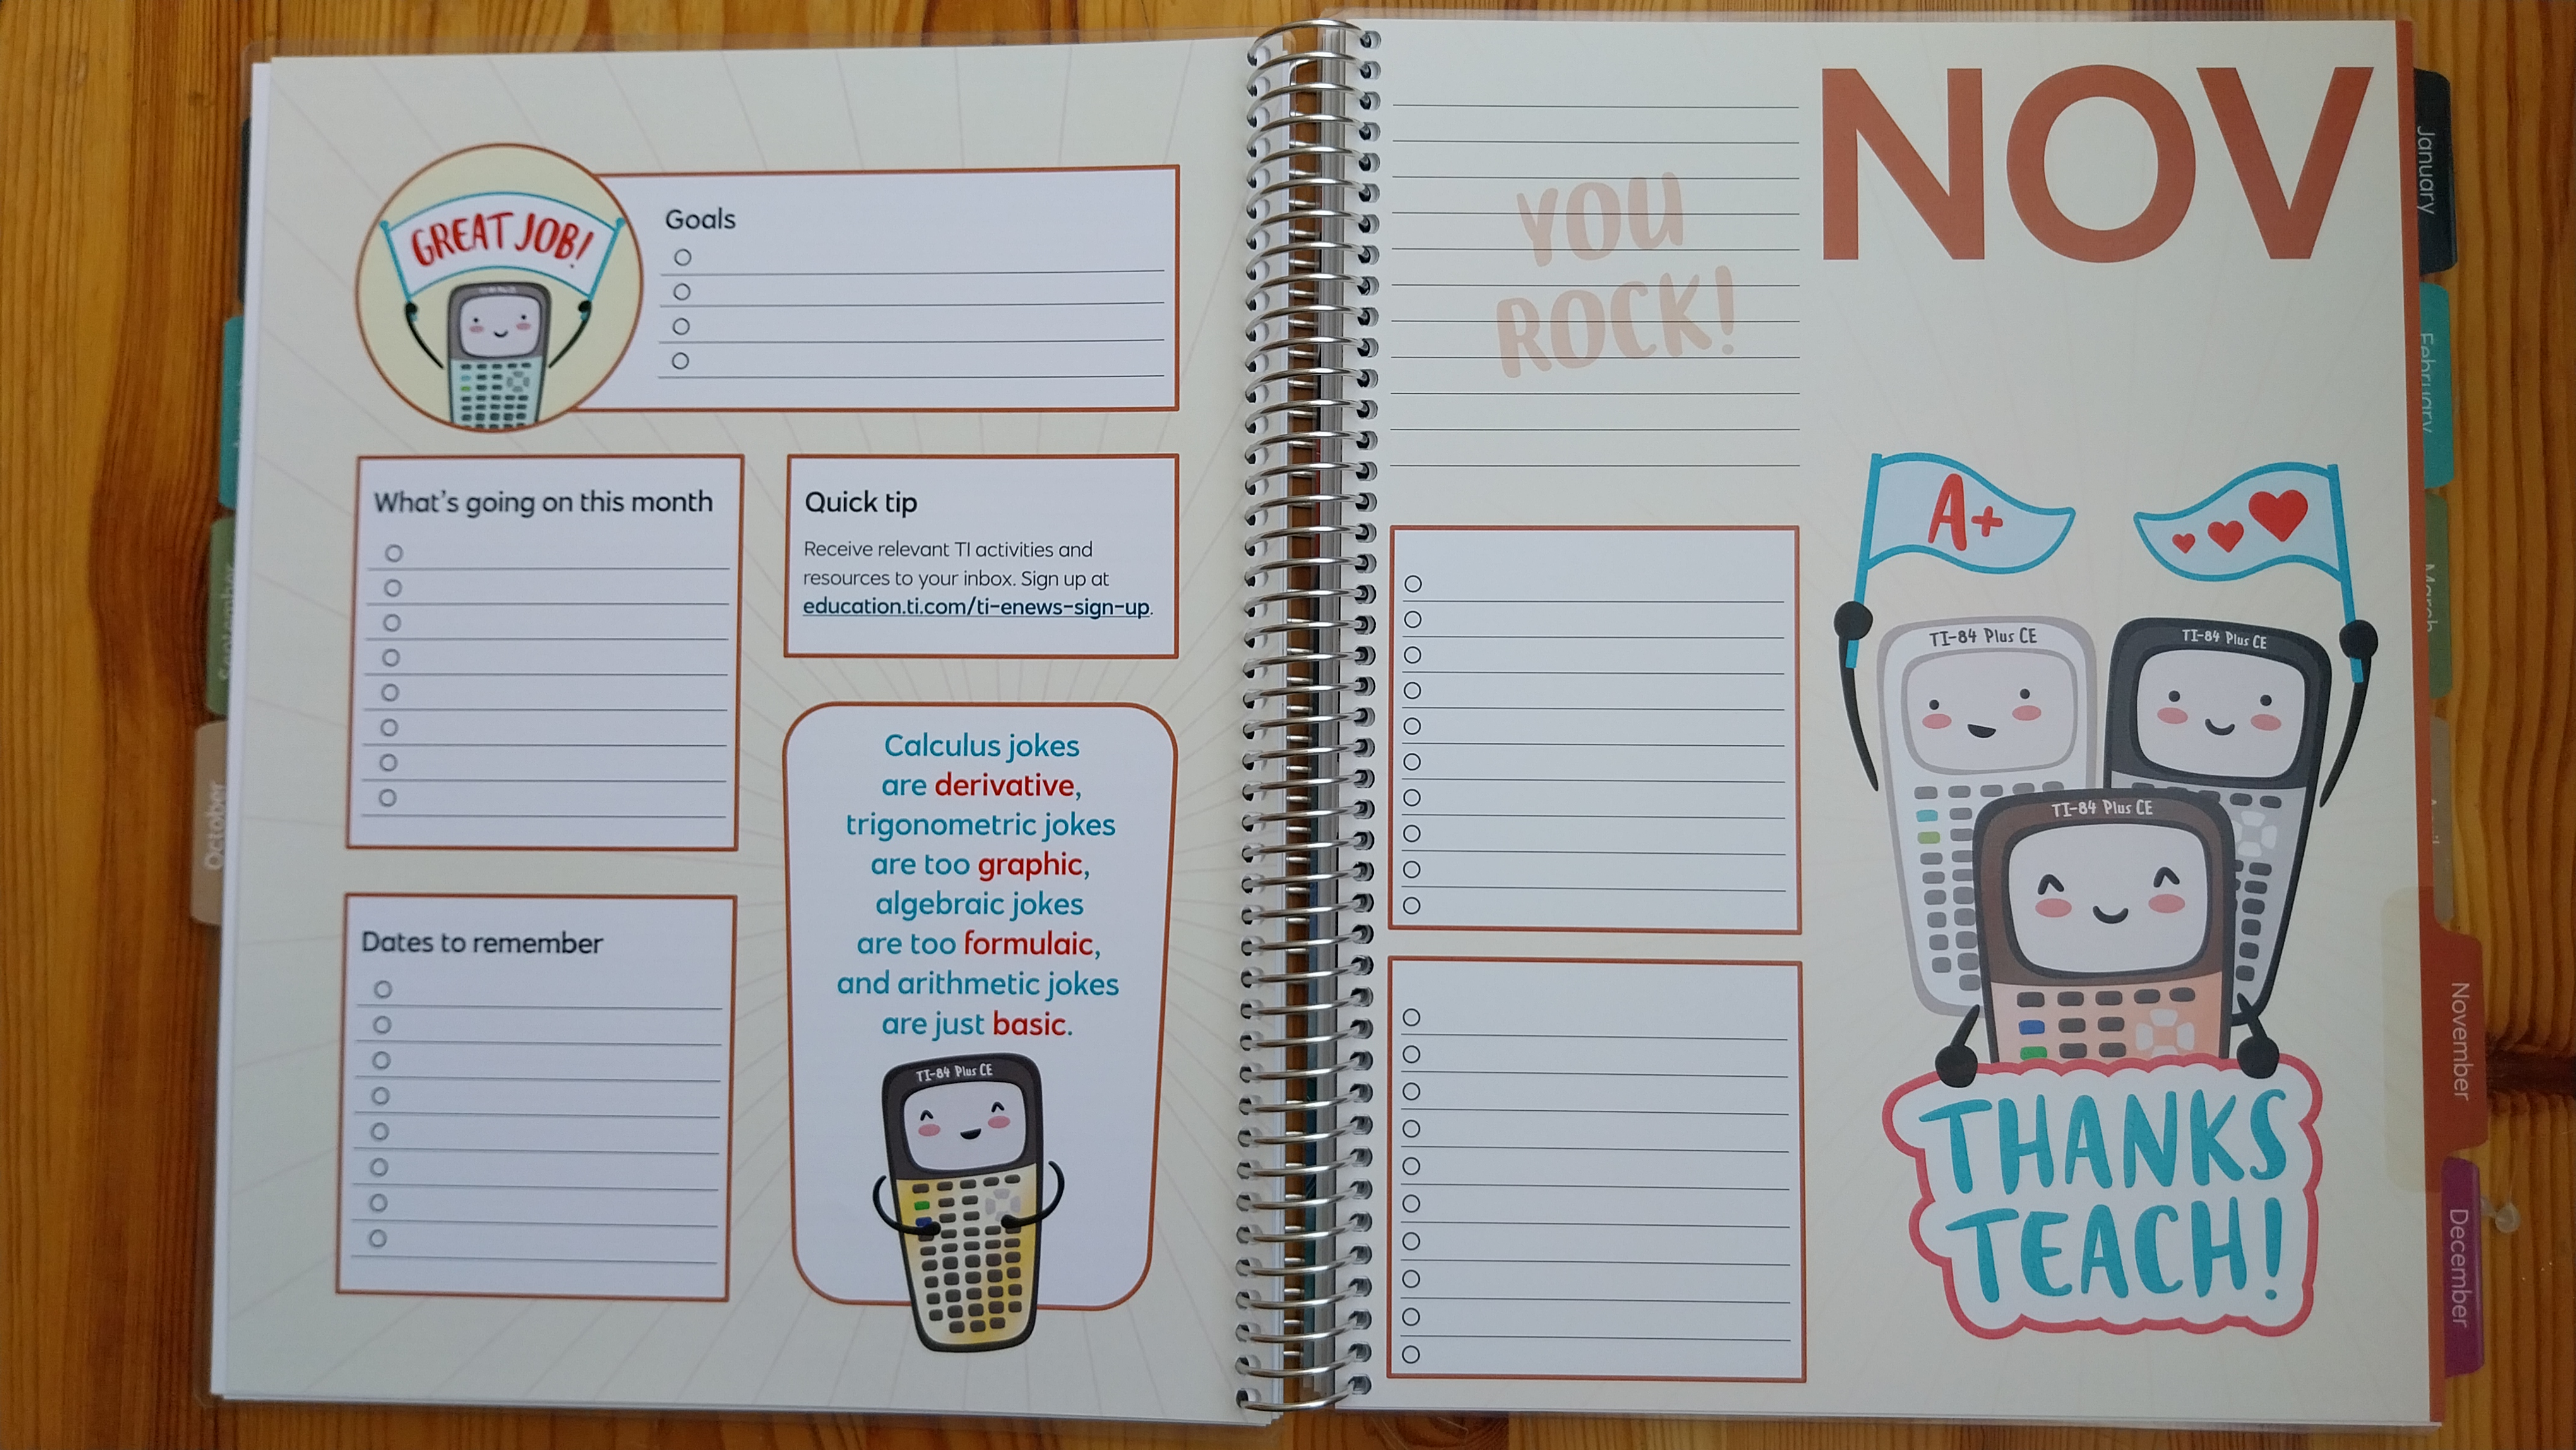 GREAT JOB!
Goals
What's going on this month
Quick tip
Receive relevant TI activities and
resources to your inbox. Sign up at
education.ti.com/ti-enews-sign-up.
Calculus jokes
are derivative,
trigonometric jokes
are too graphic,
algebraic jokes
are too formulaic,
and arithmetic jokes
are just basic.
TI-84 Plus CE
Dates to remember
September
October
YOU
ROCK!
NOV
A+
TI-84 Plus CE
TI-84 Plus CE
TI-84 Plus CE
THANKS
TEACH!
January
February
March
November
December